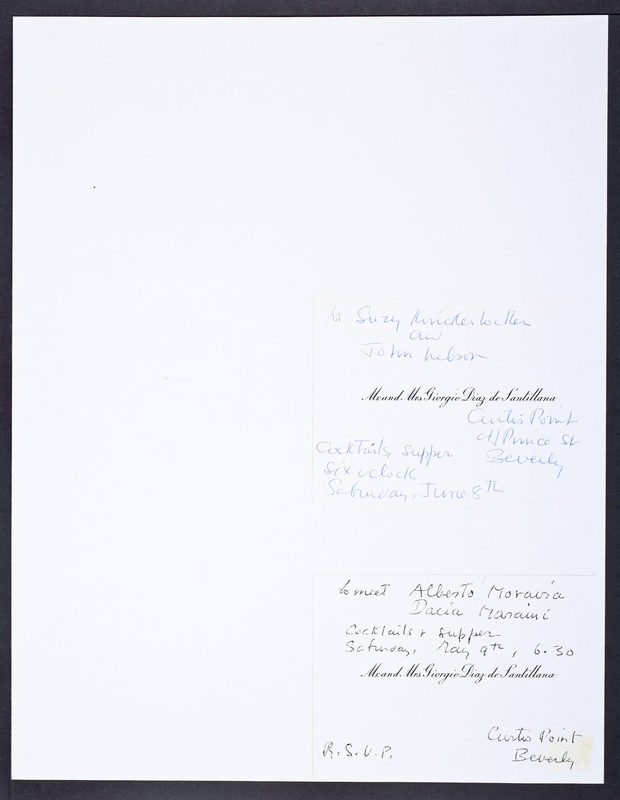 Suzy Knickerbocker
and
John Nelson
Mr. and Mrs. Giorgio Diaz de Santillana
Curtis Point
Prince St
Beverly
Cocktails, supper
Six oclock
Saturday, June 8th
to meet Alberto Moravia
Dacia Maraini
Cocktails + supper
Saturday, May 9th, 6.30
Mr. and Mrs. Giorgio Diaz de Santillana
Curtis Point
Beverly
R.S.V.P.